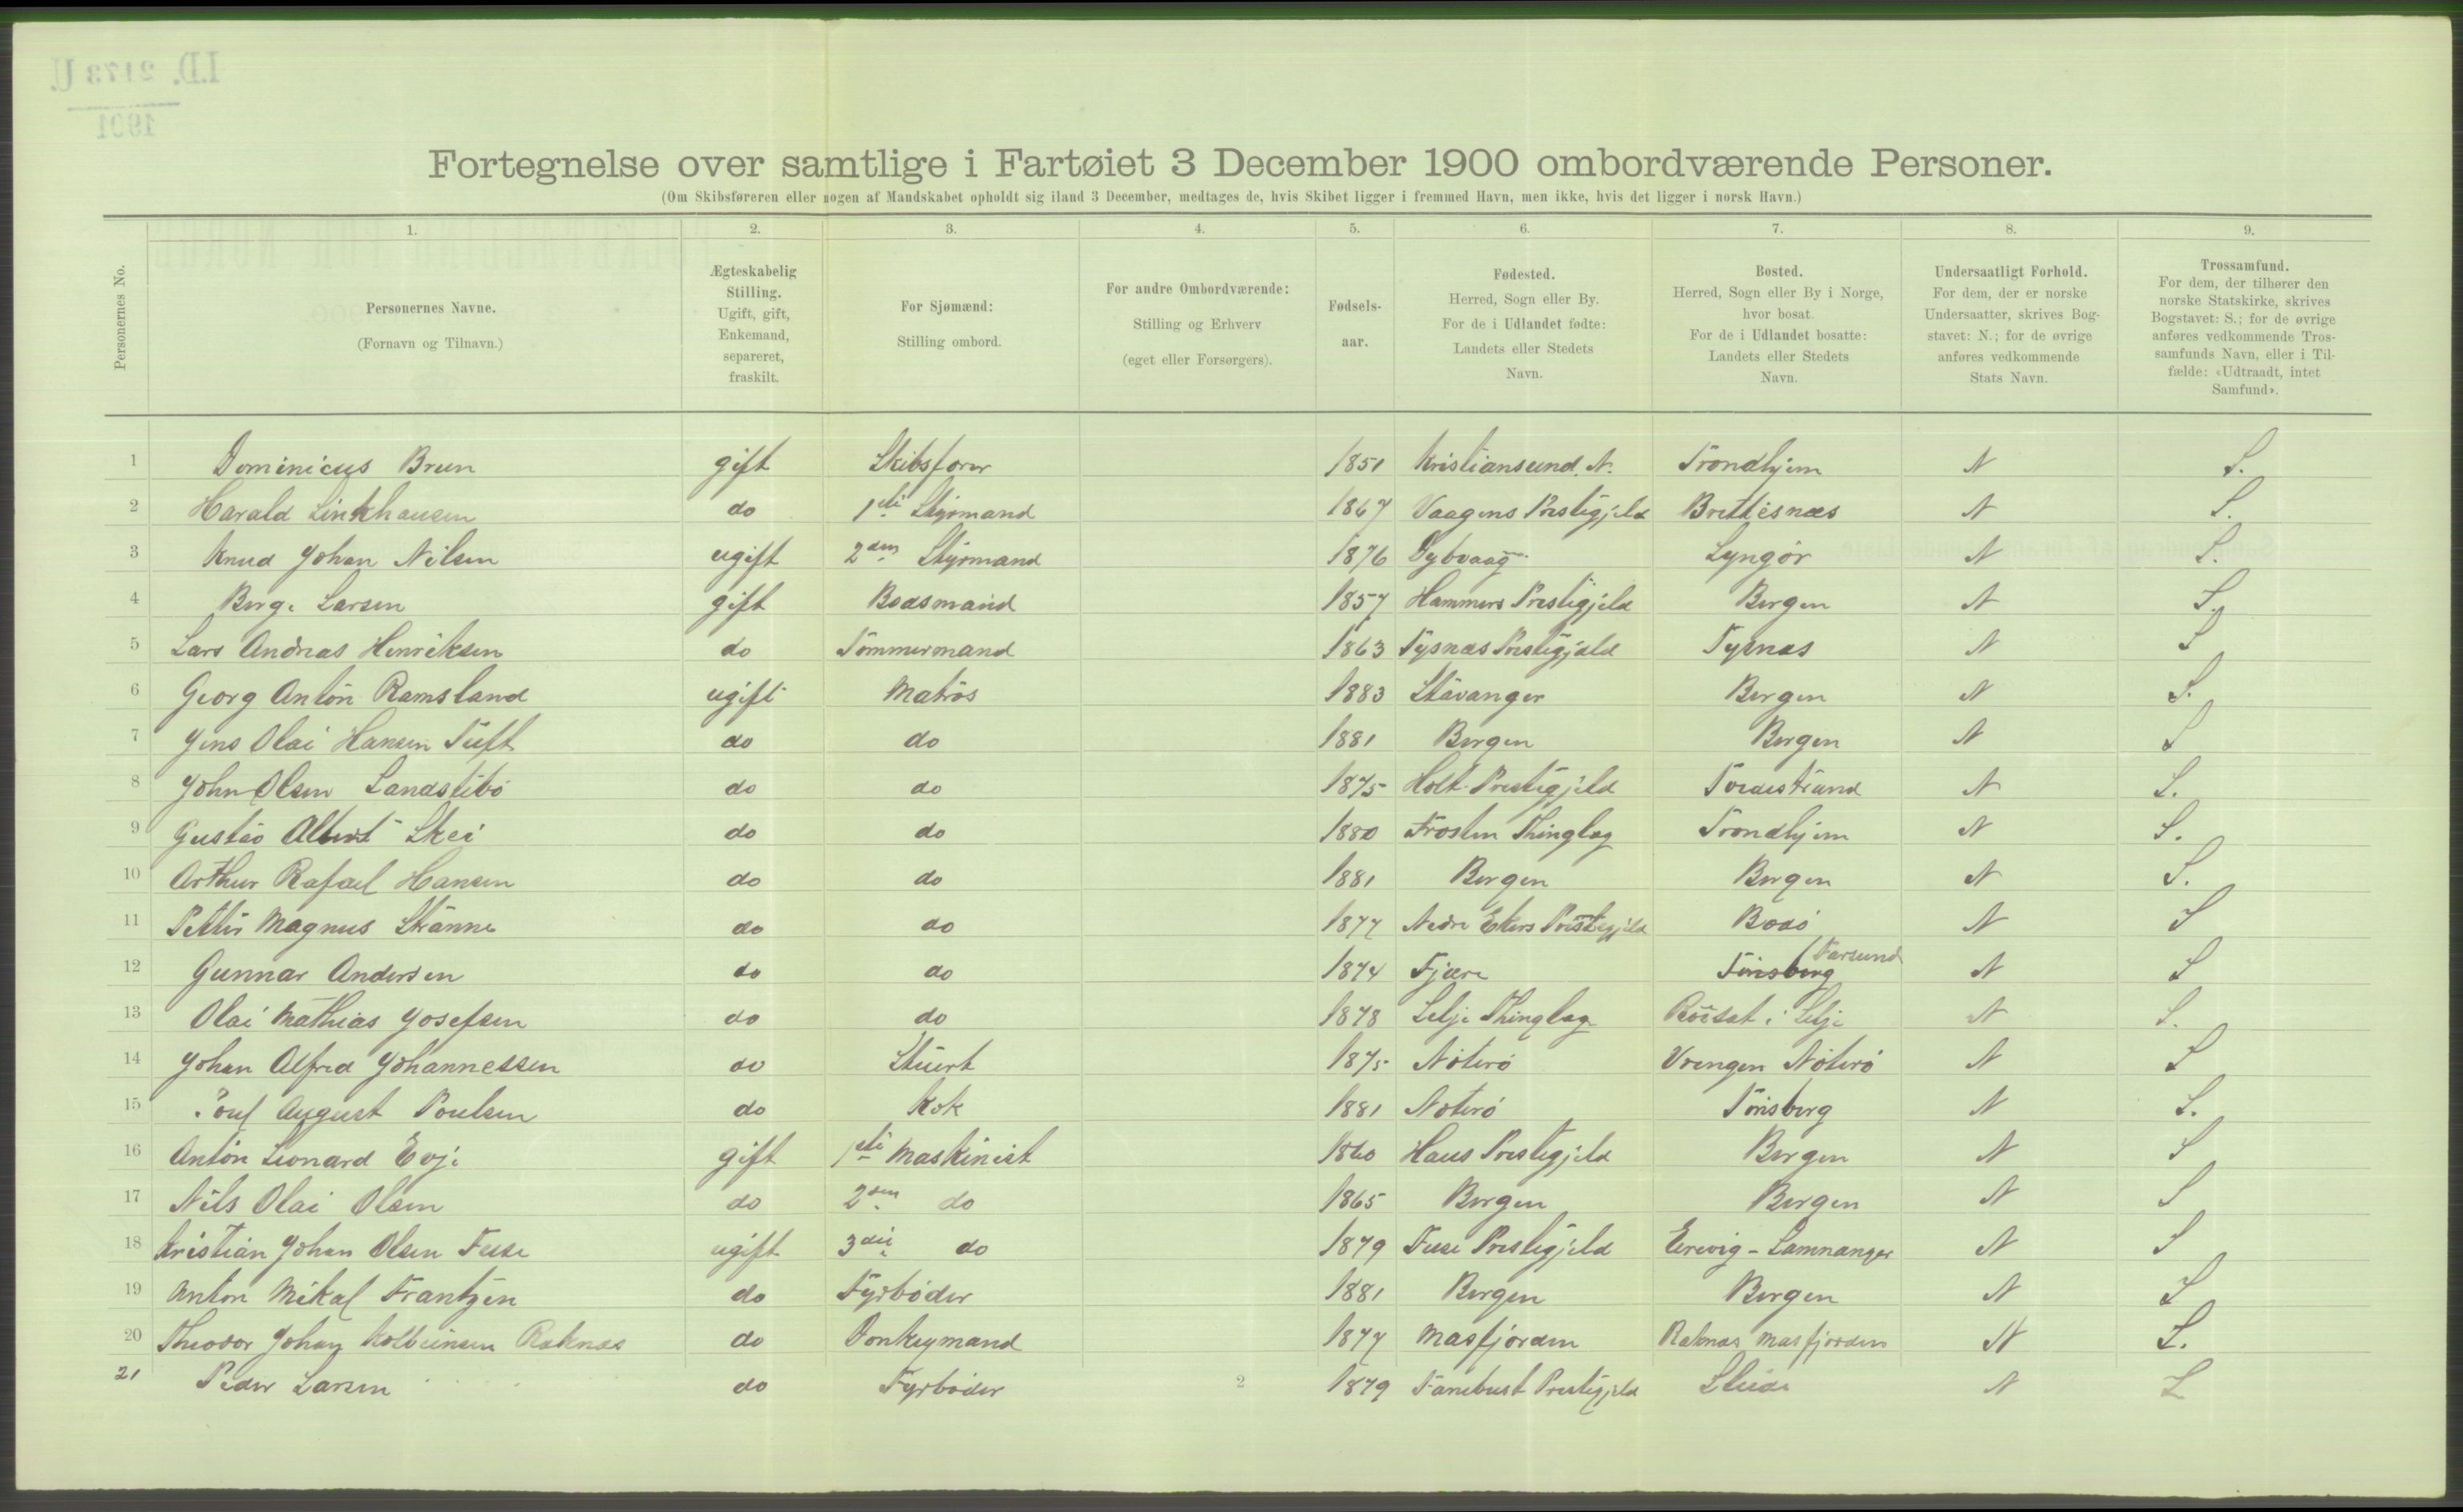 I.D. 2173 U.
1901
Fortegnelse over samtlige i Fartøiet 3 December 1900 ombordværende Personer.
(Om Skibsføreren eller nogen af Mandskabet opholdt sig iland 3 December, medtages de, hvis Skibet ligger i fremmed Havn, men ikke, hvis det ligger i norsk Havn.)
Personernes No.
1. 2. 3. 4. 5. 6. 7. 8. 9.
Personernes Navne.
(Fornavn og Tilnavn.)
Ægteskabelig
Stilling.
Ugift, gift,
Enkemand,
separeret,
fraskilt.
For Sjømænd:
Stilling ombord.
For andre Ombordværende:
Stilling og Erhverv
(eget eller Forsørgers).
Fødsels-
aar.
Fødested.
Herred, Sogn eller By.
For de i Udlandet fødte:
Landets eller Stedets
Navn.
Bosted.
Herred, Sogn eller By i Norge,
hvor bosat.
For de i Udlandet bosatte:
Landets eller Stedets
Navn.
Undersaatligt Forhold.
For dem, der er norske
Undersaatter, skrives Bog-
stavet: N.; for de øvrige
anføres vedkommende
Stats Navn.
Trossamfund.
For dem, der tilhører den
norske Statskirke, skrives
Bogstavet: S.; for de øvrige
anføres vedkommende Tros-
samfunds Navn, eller i Til-
fælde: «Udtraadt, intet
Samfund».
1 Dominicus Brun gift Skibsfører 1851 Kristiansund. N. Trondhjem N S.
2 Harald Linkhausen do 1ste Styrmand 1867 Vaagens Prestegjeld Brettesnæs N S.
3 Knud Johan Nilsen ugift 2den Styrmand 1876 Dybvaag Lyngør N S.
4 Berge Larsen gift Baasmand 1857 Hammers Prestegjeld Bergen N S.
5 Lars Andreas Henriksen do Tømmermand 1863 Tysnæs Prestegjæld Tysnæs N S
6 Georg Anton Ramsland ugift Matros 1883 Stavanger Bergen N S.
7 Jens Olai Hansen Tuft do do 1881 Bergen Bergen N S
8 John Olsen Landstibø do do 1875 Holt Prestegjeld Tvedestrand N S.
9 Gustav Albert Skei do do 1880 Frosten Thinglag Trondhjem N S.
10 Arthur Rafael Hansen do do 1881 Bergen Bergen N S.
11 Petter Magnus Stranne do do 1877 Nedre Ekers Prestegjeld Bodø N S
12 Gunnar Andersen do do 1874 Fjære Tønsberg (Farsund N S
13 Olai Mathias Josefsen do do 1878 Selje Thinglag i Selje N S.
14 Johan Alfred Johannessen do Stuert 1875 Nøterø Vrengen Nøterø N S
15 Poul August Poulsen do Kok 1881 Nøterø Tønsberg N S.
16 Anton Leonard Evje gift 1ste Maskinist 1860 Haus Prestegjeld Bergen N S
17 Nils Olai Olsen do 2den do 1865 Bergen Bergen N S
18 Kristian Johan Olsen Fuse ugift 3die do 1879 Fuse Prestegjeld Erevig - Samnanger N S
19 Anton Mikal Frantzen do Fyrbøder 1881 Bergen Bergen N S
20 Theodor Johan Kolbeinsen Raknæs do Donkeymand 1877 Masfjorden Raknæs Masfjorden N S.
21 Peder Larsen do Fyrbøder 2 1879 Prestegjeld N S